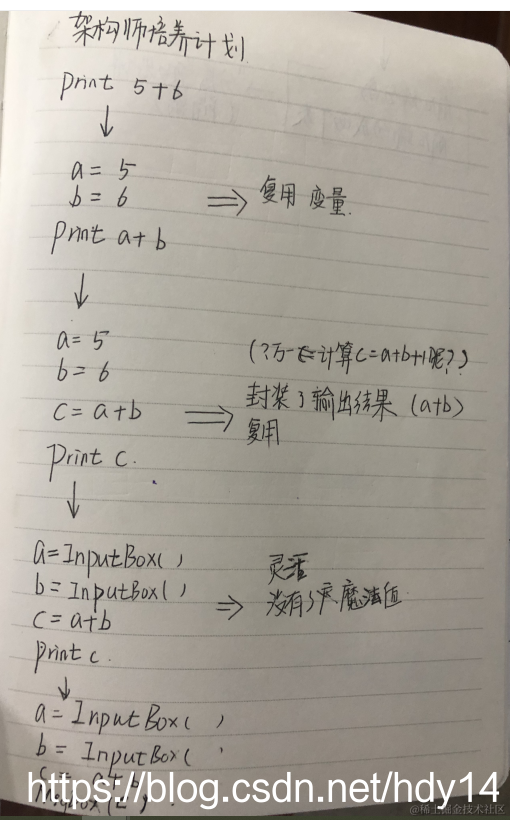 架构师培养计划
print 5+6
↓
a = 5
b = 6
⇒ 复用 变量.
print a+b
↓
a = 5
b = 6
(？万一在计算c=a+b+1呢？？)
c = a+b
⇒ 封装了输出结果 (a+b)
复用
print c.
↓
a=InputBox()
b=InputBox()
⇒ 灵活
没有了 魔法值
c=a+b
print c.
↓
a=InputBox( )
b = InputBox(
c = a+b
MsgBox(c)
https://blog.csdn.net/hdy14
@稀土掘金技术社区